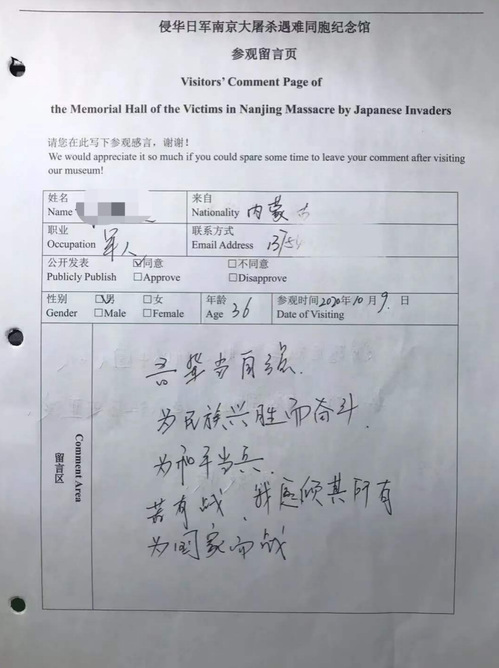 侵华日军南京大屠杀遇难同胞纪念馆
参观留言页
Visitors' Comment Page of
the Memorial Hall of the Victims in Nanjing Massacre by Japanese Invaders
请您在此写下参观感言，谢谢！
We would appreciate it so much if you could spare some time to leave your comment after visiting
our museum!
姓名 来自
Name Nationality 内蒙古
职业 联系方式
Occupation 军人 Email Address
公开发表 ☑同意 □不同意
Publicly Publish □Approve □Disapprove
性别 ☑男 □女 年龄 参观时间 2020年10月9日
Gender □Male □Female Age 36 Date of Visiting
留言区
Comment Area
吾辈当自强.
为民族兴胜而奋斗.
为和平当兵.
若有战、我愿倾其所有
为国家而战